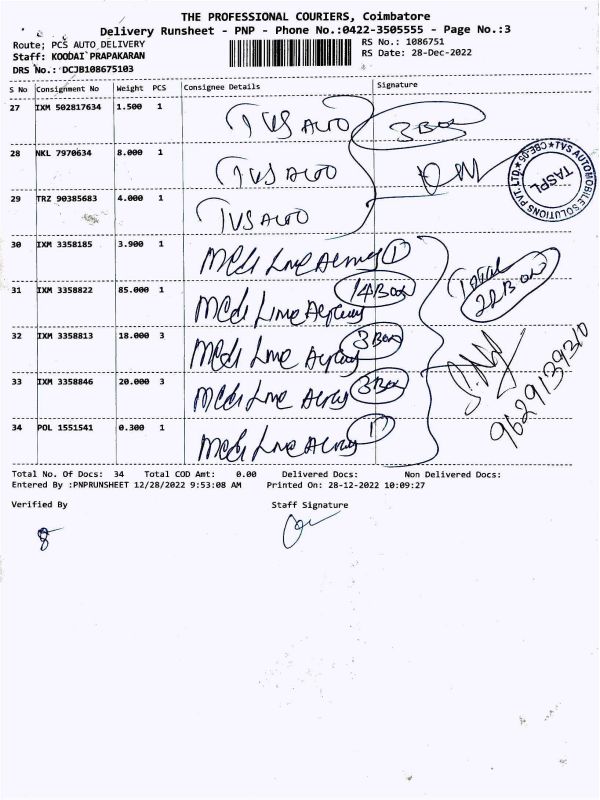 THE PROFESSIONAL COURIERS, Coimbatore
Delivery Runsheet - PNP - Phone No.:0422-3505555 - Page No.:3
Route; PCS AUTO DELIVERY
RS No.: 1086751
Staff: KOODAI PRAPAKARAN
RS Date: 28-Dec-2022
DRS No.: DCJB108675103
S No Consignment No Weight PCS Consignee Details Signature
27 IXM 502817634 1.500 1 TVS AUTO 3 Box
28 NKL 7970634 8.000 1 TVS AUTO
29 TRZ 90385683 4.000 1 TVS AUTO
TVS AUTOMOBILE SOLUTIONS PVT. LTD.
TASPL
30 IXM 3358185 3.900 1 1
Total
22 Box
31 IXM 3358822 85.000 1 14 Box
32 IXM 3358813 18.000 3 3 Box
33 IXM 3358846 20.000 3 3 Box
9629139310
34 POL 1551541 0.300 1 1
Total No. Of Docs: 34 Total COD Amt: 0.00 Delivered Docs: Non Delivered Docs:
Entered By :PNPRUNSHEET 12/28/2022 9:53:08 AM Printed On: 28-12-2022 10:09:27
Verified By Staff Signature